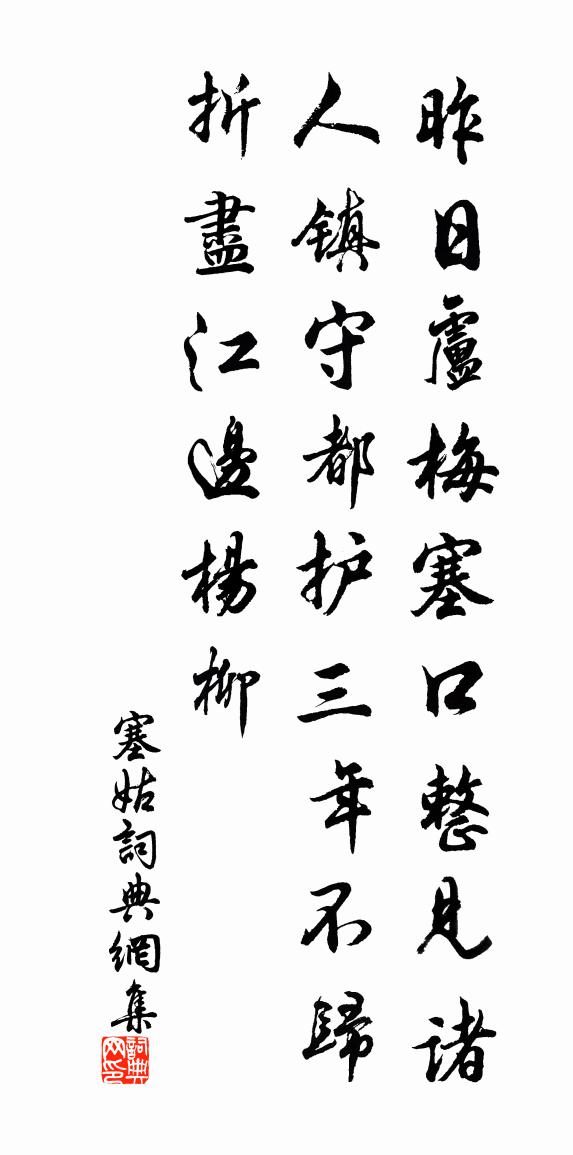 昨日盧梅塞口整見诸
人镇守都护三年不歸
折盡江邊楊柳
塞姑詞典網集
詞典网印